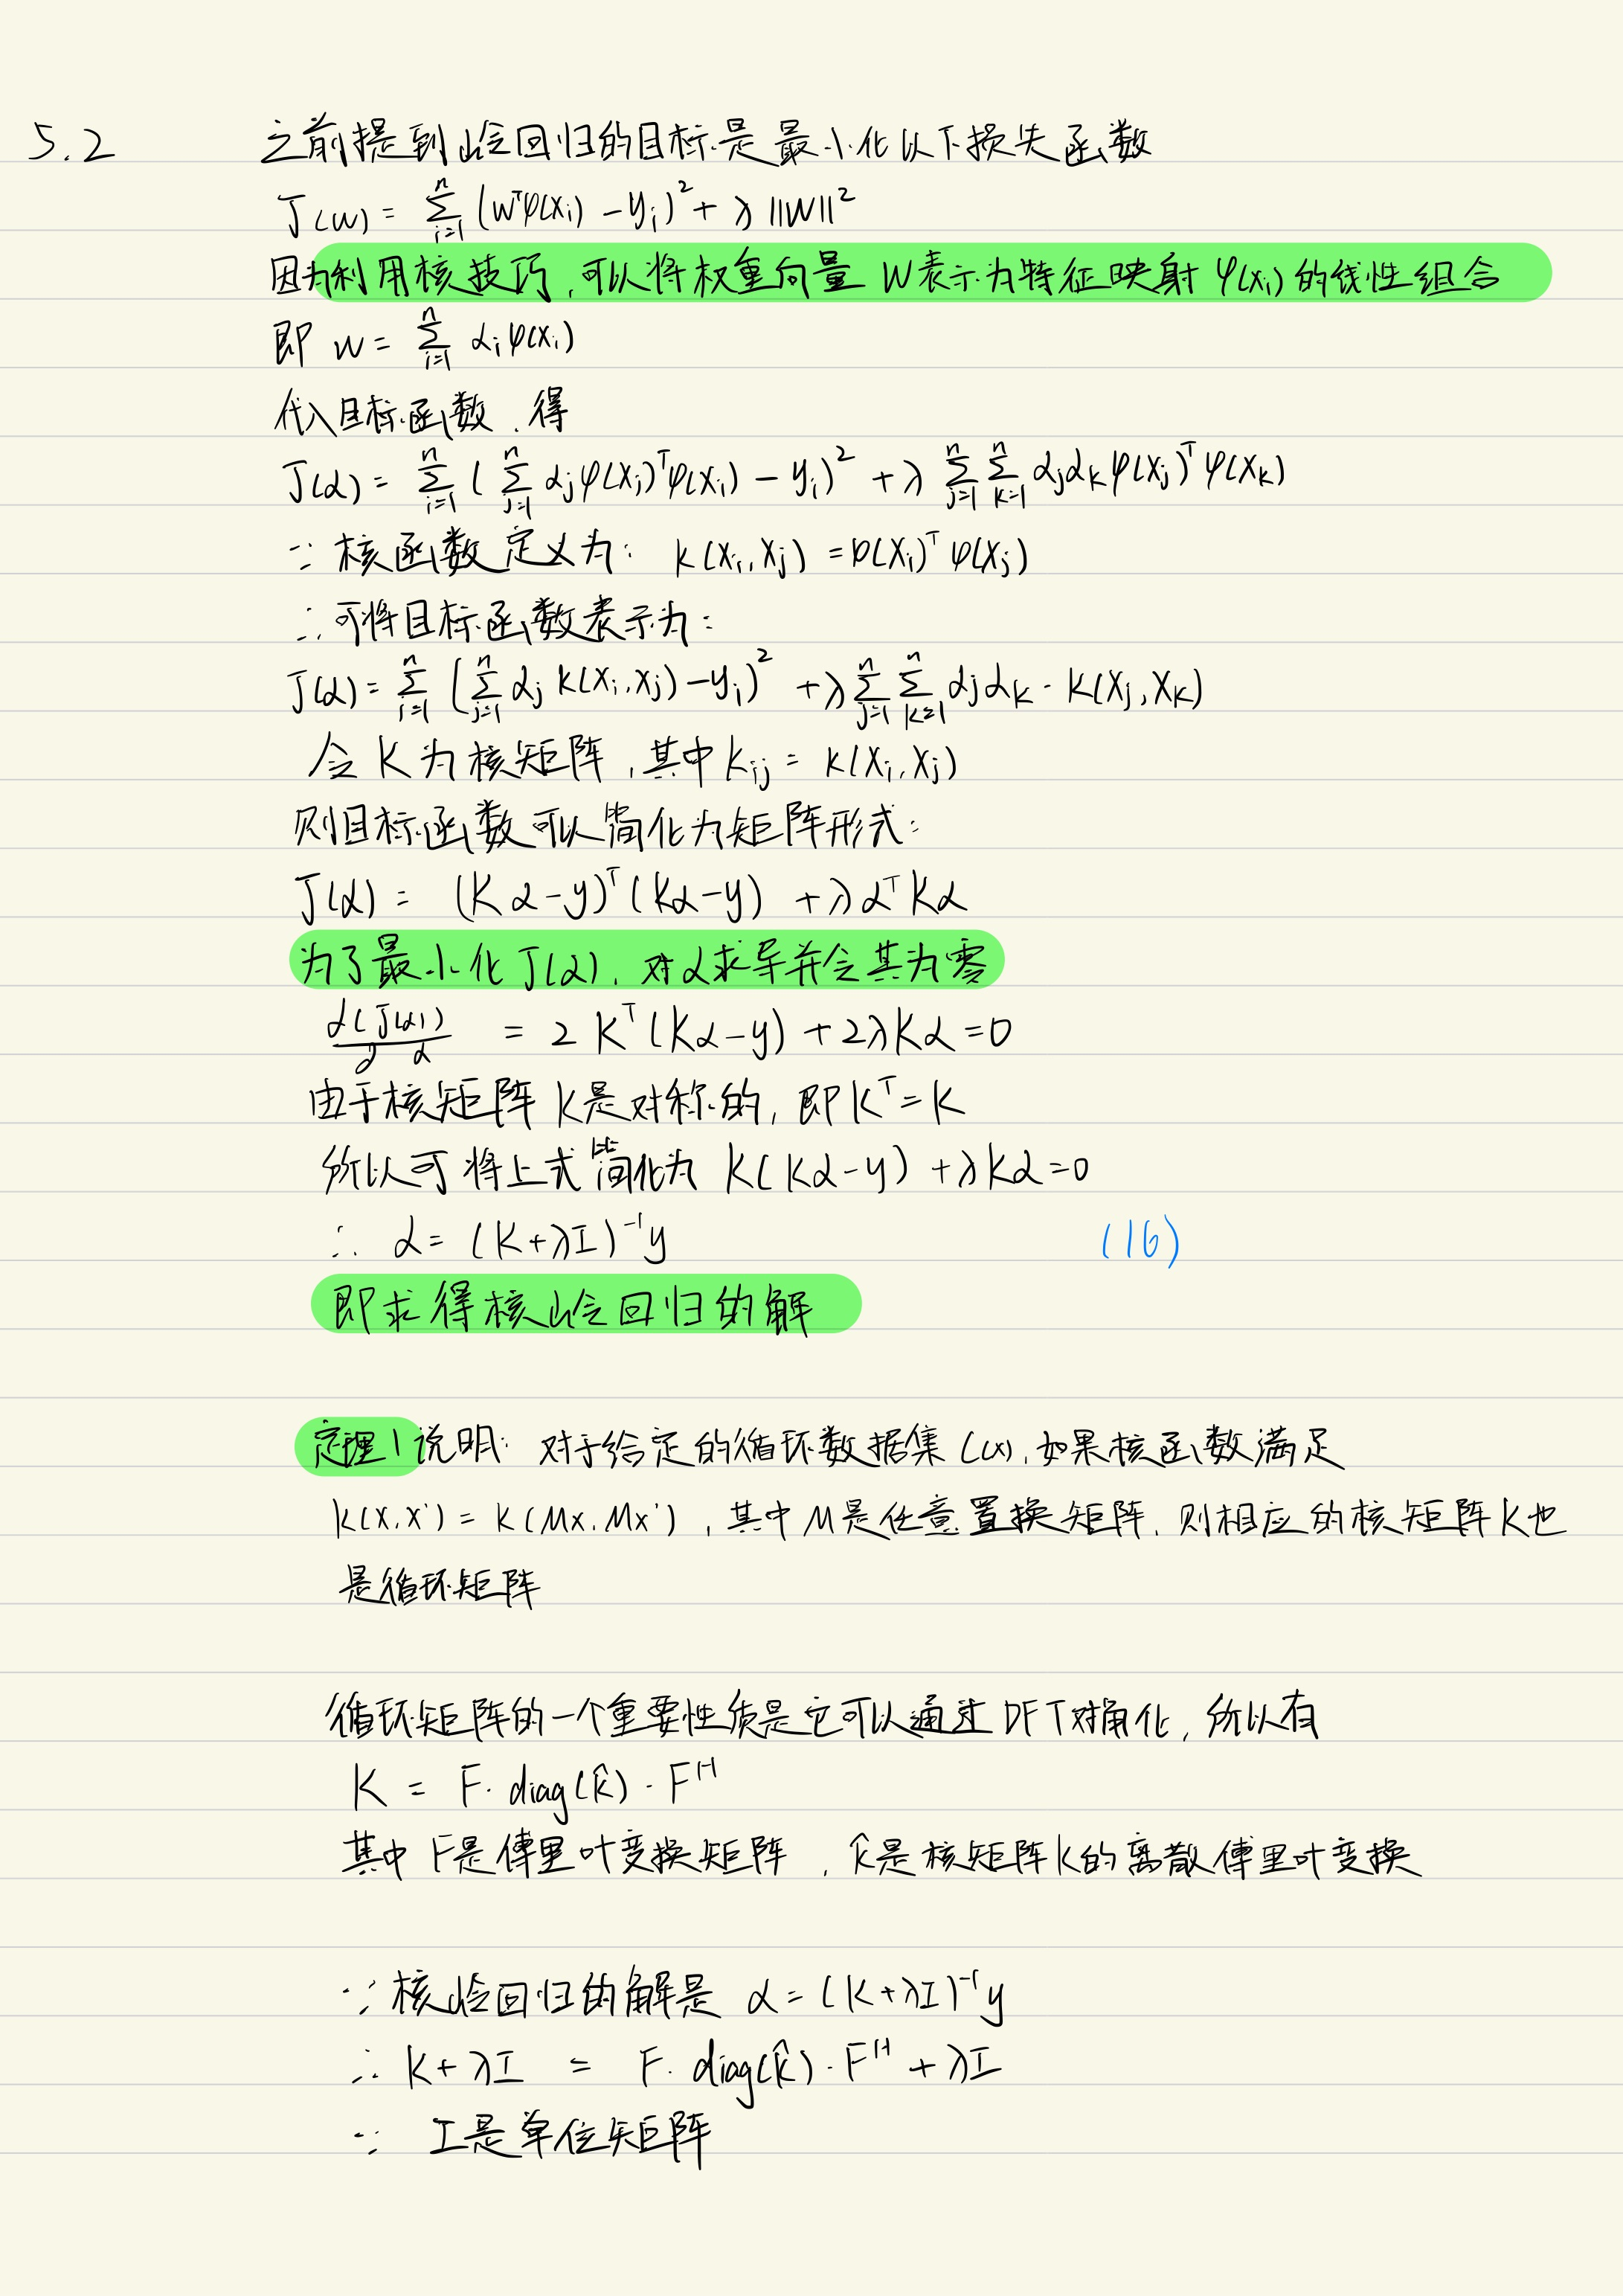 5.2 之前提到岭回归的目标是最小化以下损失函数
J(w) = ∑_{i=1}^{n} (wᵀφ(xᵢ) - yᵢ)² + λ ||w||²
因为利用核技巧,可以将权重向量 w表示为特征映射 φ(xᵢ) 的线性组合
即 w = ∑_{i=1}^{n} αᵢφ(xᵢ)
代入目标函数,得
J(α) = ∑_{i=1}^{n} ( ∑_{j=1}^{n} αⱼφ(xⱼ)ᵀφ(xᵢ) - yᵢ)² + λ ∑_{j=1}^{n} ∑_{k=1}^{n} αⱼαₖφ(xⱼ)ᵀφ(xₖ)
∵ 核函数定义为: k(xᵢ,xⱼ) = φ(xᵢ)ᵀφ(xⱼ)
∴可将目标函数表示为:
J(α) = ∑_{i=1}^{n} ( ∑_{j=1}^{n} αⱼ k(xᵢ,xⱼ) - yᵢ)² + λ ∑_{j=1}^{n} ∑_{k=1}^{n} αⱼαₖ · k(xⱼ,xₖ)
令 K 为核矩阵,其中 Kᵢⱼ = k(xᵢ,xⱼ)
则目标函数可以简化为矩阵形式:
J(α) = (Kα-y)ᵀ(Kα-y) + λαᵀKα
为了最小化 J(α),对α求导并令其为零
∂(J(α))/∂α = 2Kᵀ(Kα-y) + 2λKα = 0
由于核矩阵 K是对称的,即 Kᵀ = K
所以可将上式简化为 K(Kα-y) + λKα = 0
∴ α = (K+λI)⁻¹y (16)
即求得核岭回归的解
定理1说明: 对于给定的循环数据集 C(x),如果核函数满足
k(x,x') = k(Mx,Mx'),其中 M是任意置换矩阵,则相应的核矩阵K也
是循环矩阵
循环矩阵的一个重要性质是它可以通过 DFT对角化,所以有
K = F · diag(k̂) · Fᴴ
其中 F是傅里叶变换矩阵,k̂是核矩阵K的离散傅里叶变换
∵核岭回归的解是 α = (K+λI)⁻¹y
∴ K+λI = F · diag(k̂) · Fᴴ + λI
∵ I是单位矩阵